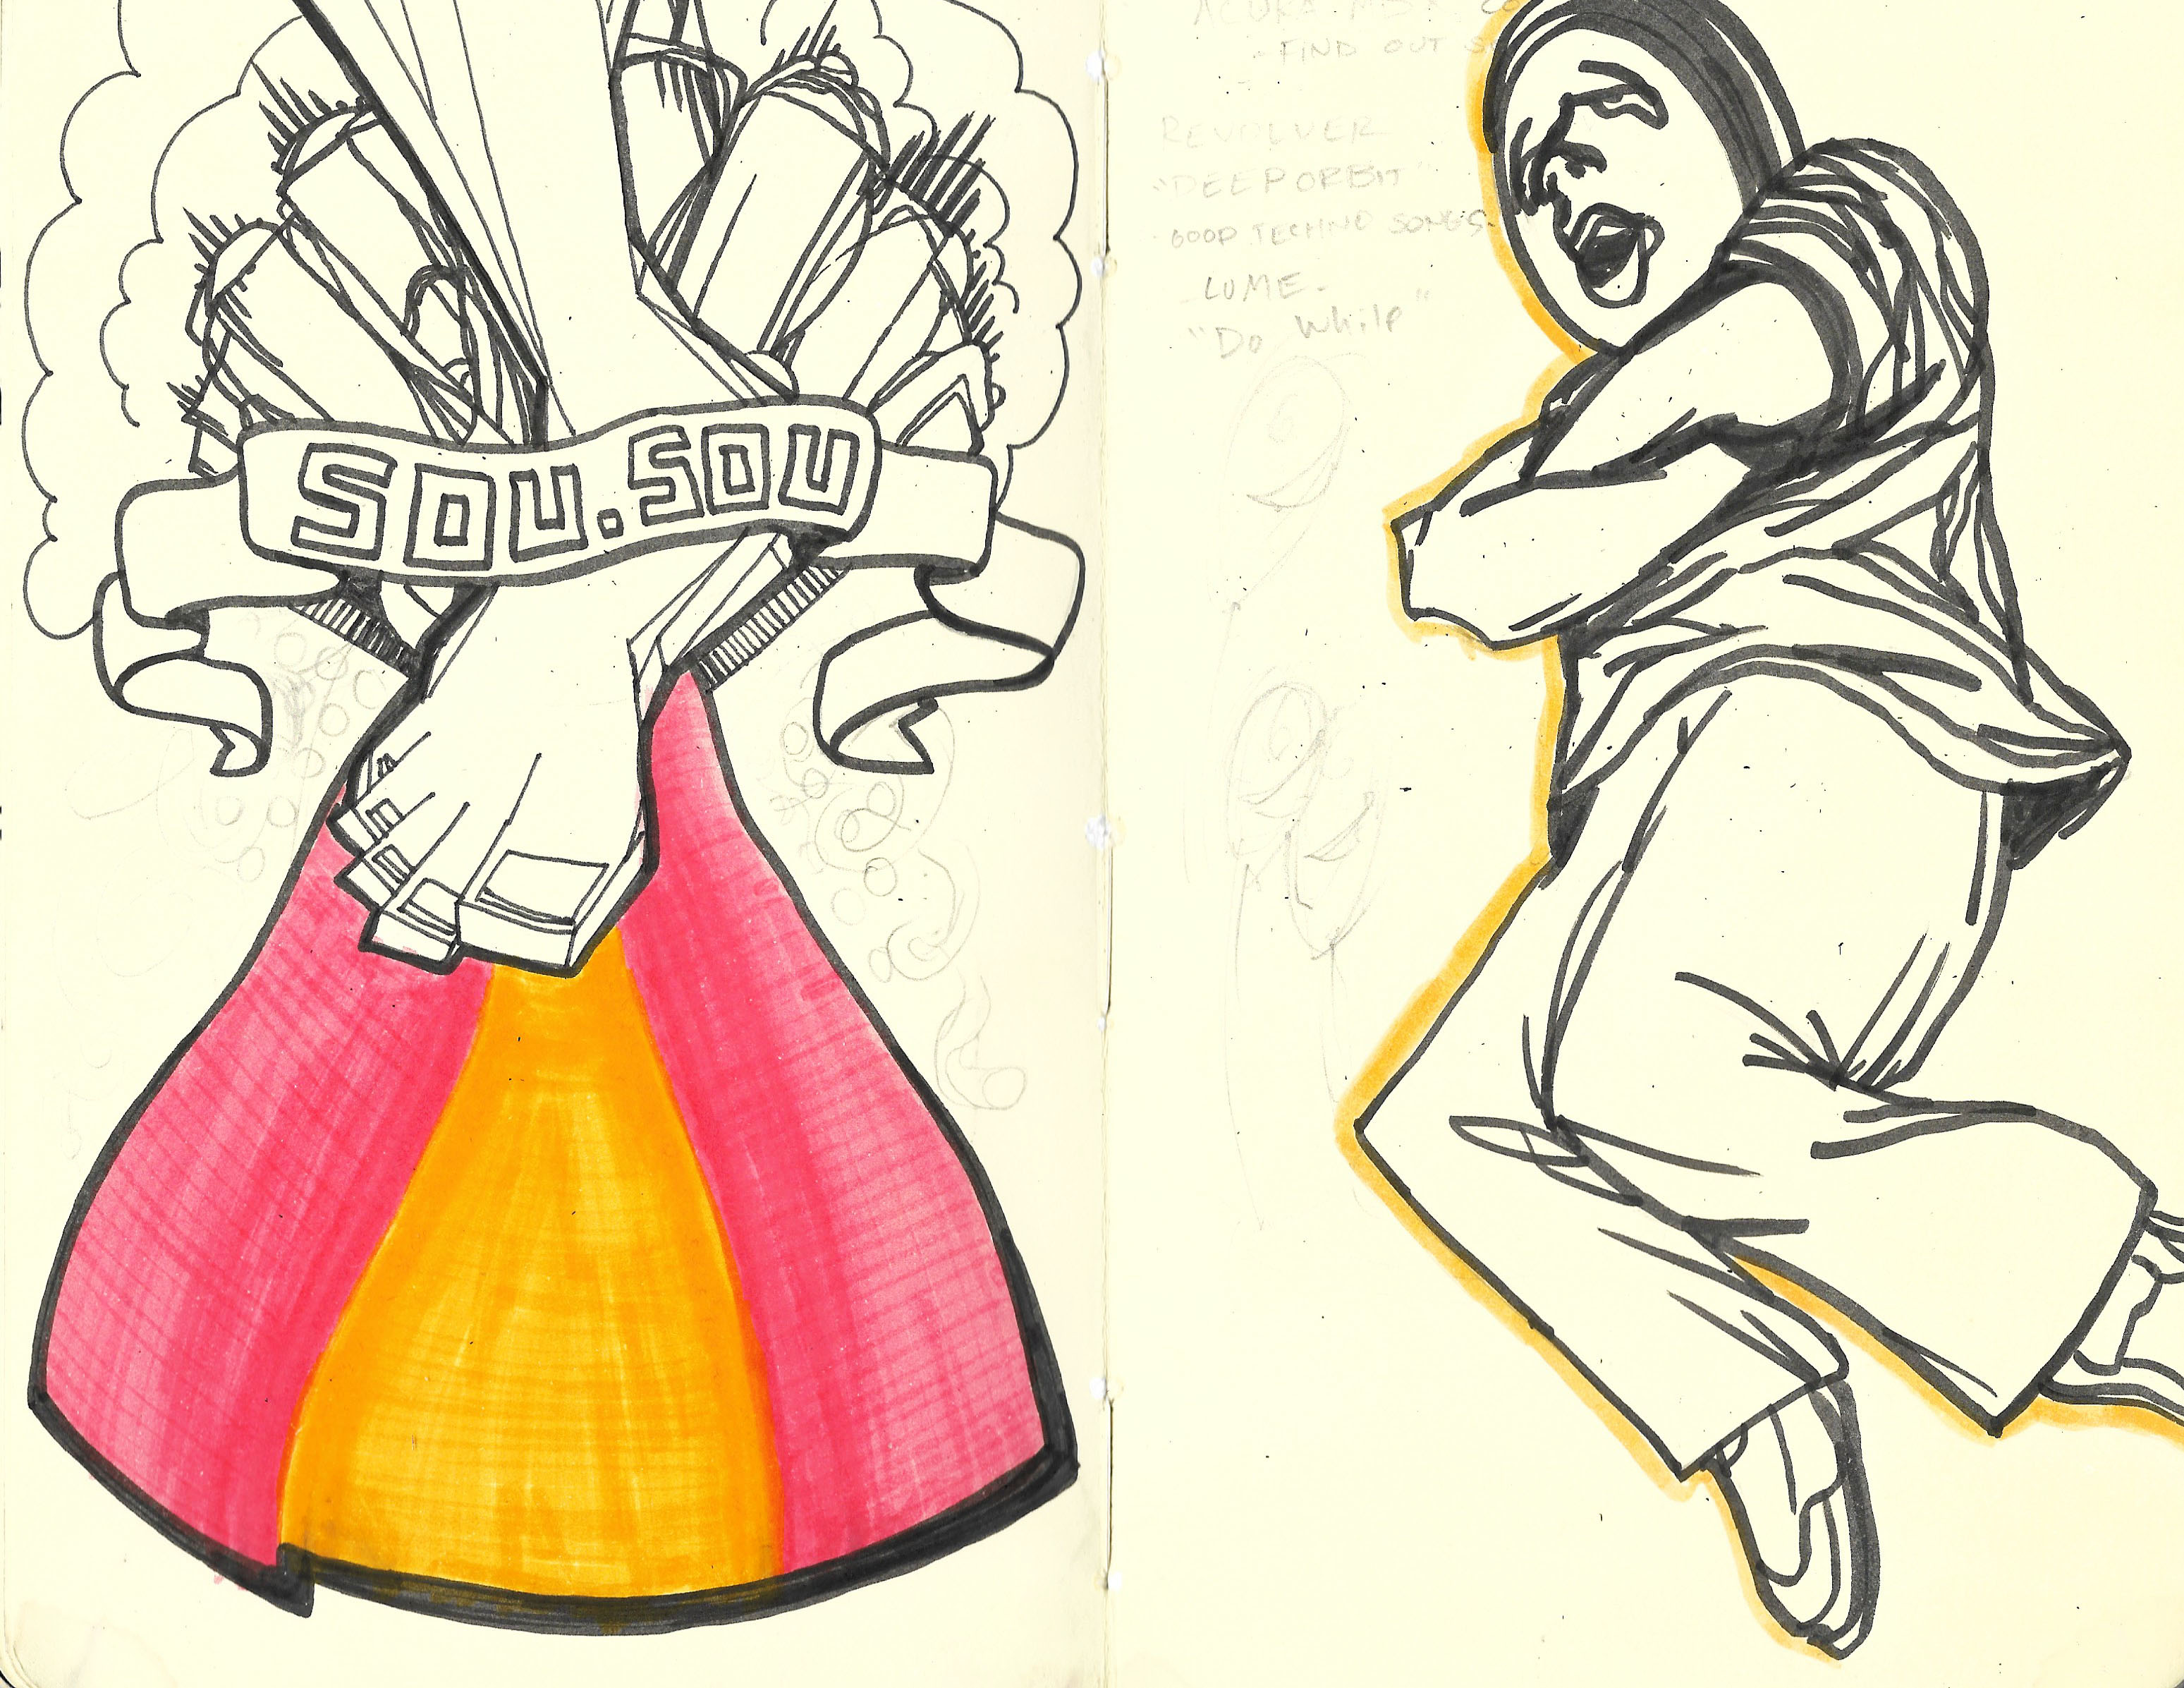 SOU.SOU
ACURA MDX
- FIND OUT
REVOLVER
"DEEP ORBIT"
GOOD TECHNO SONGS-
LUME-
"Do While"